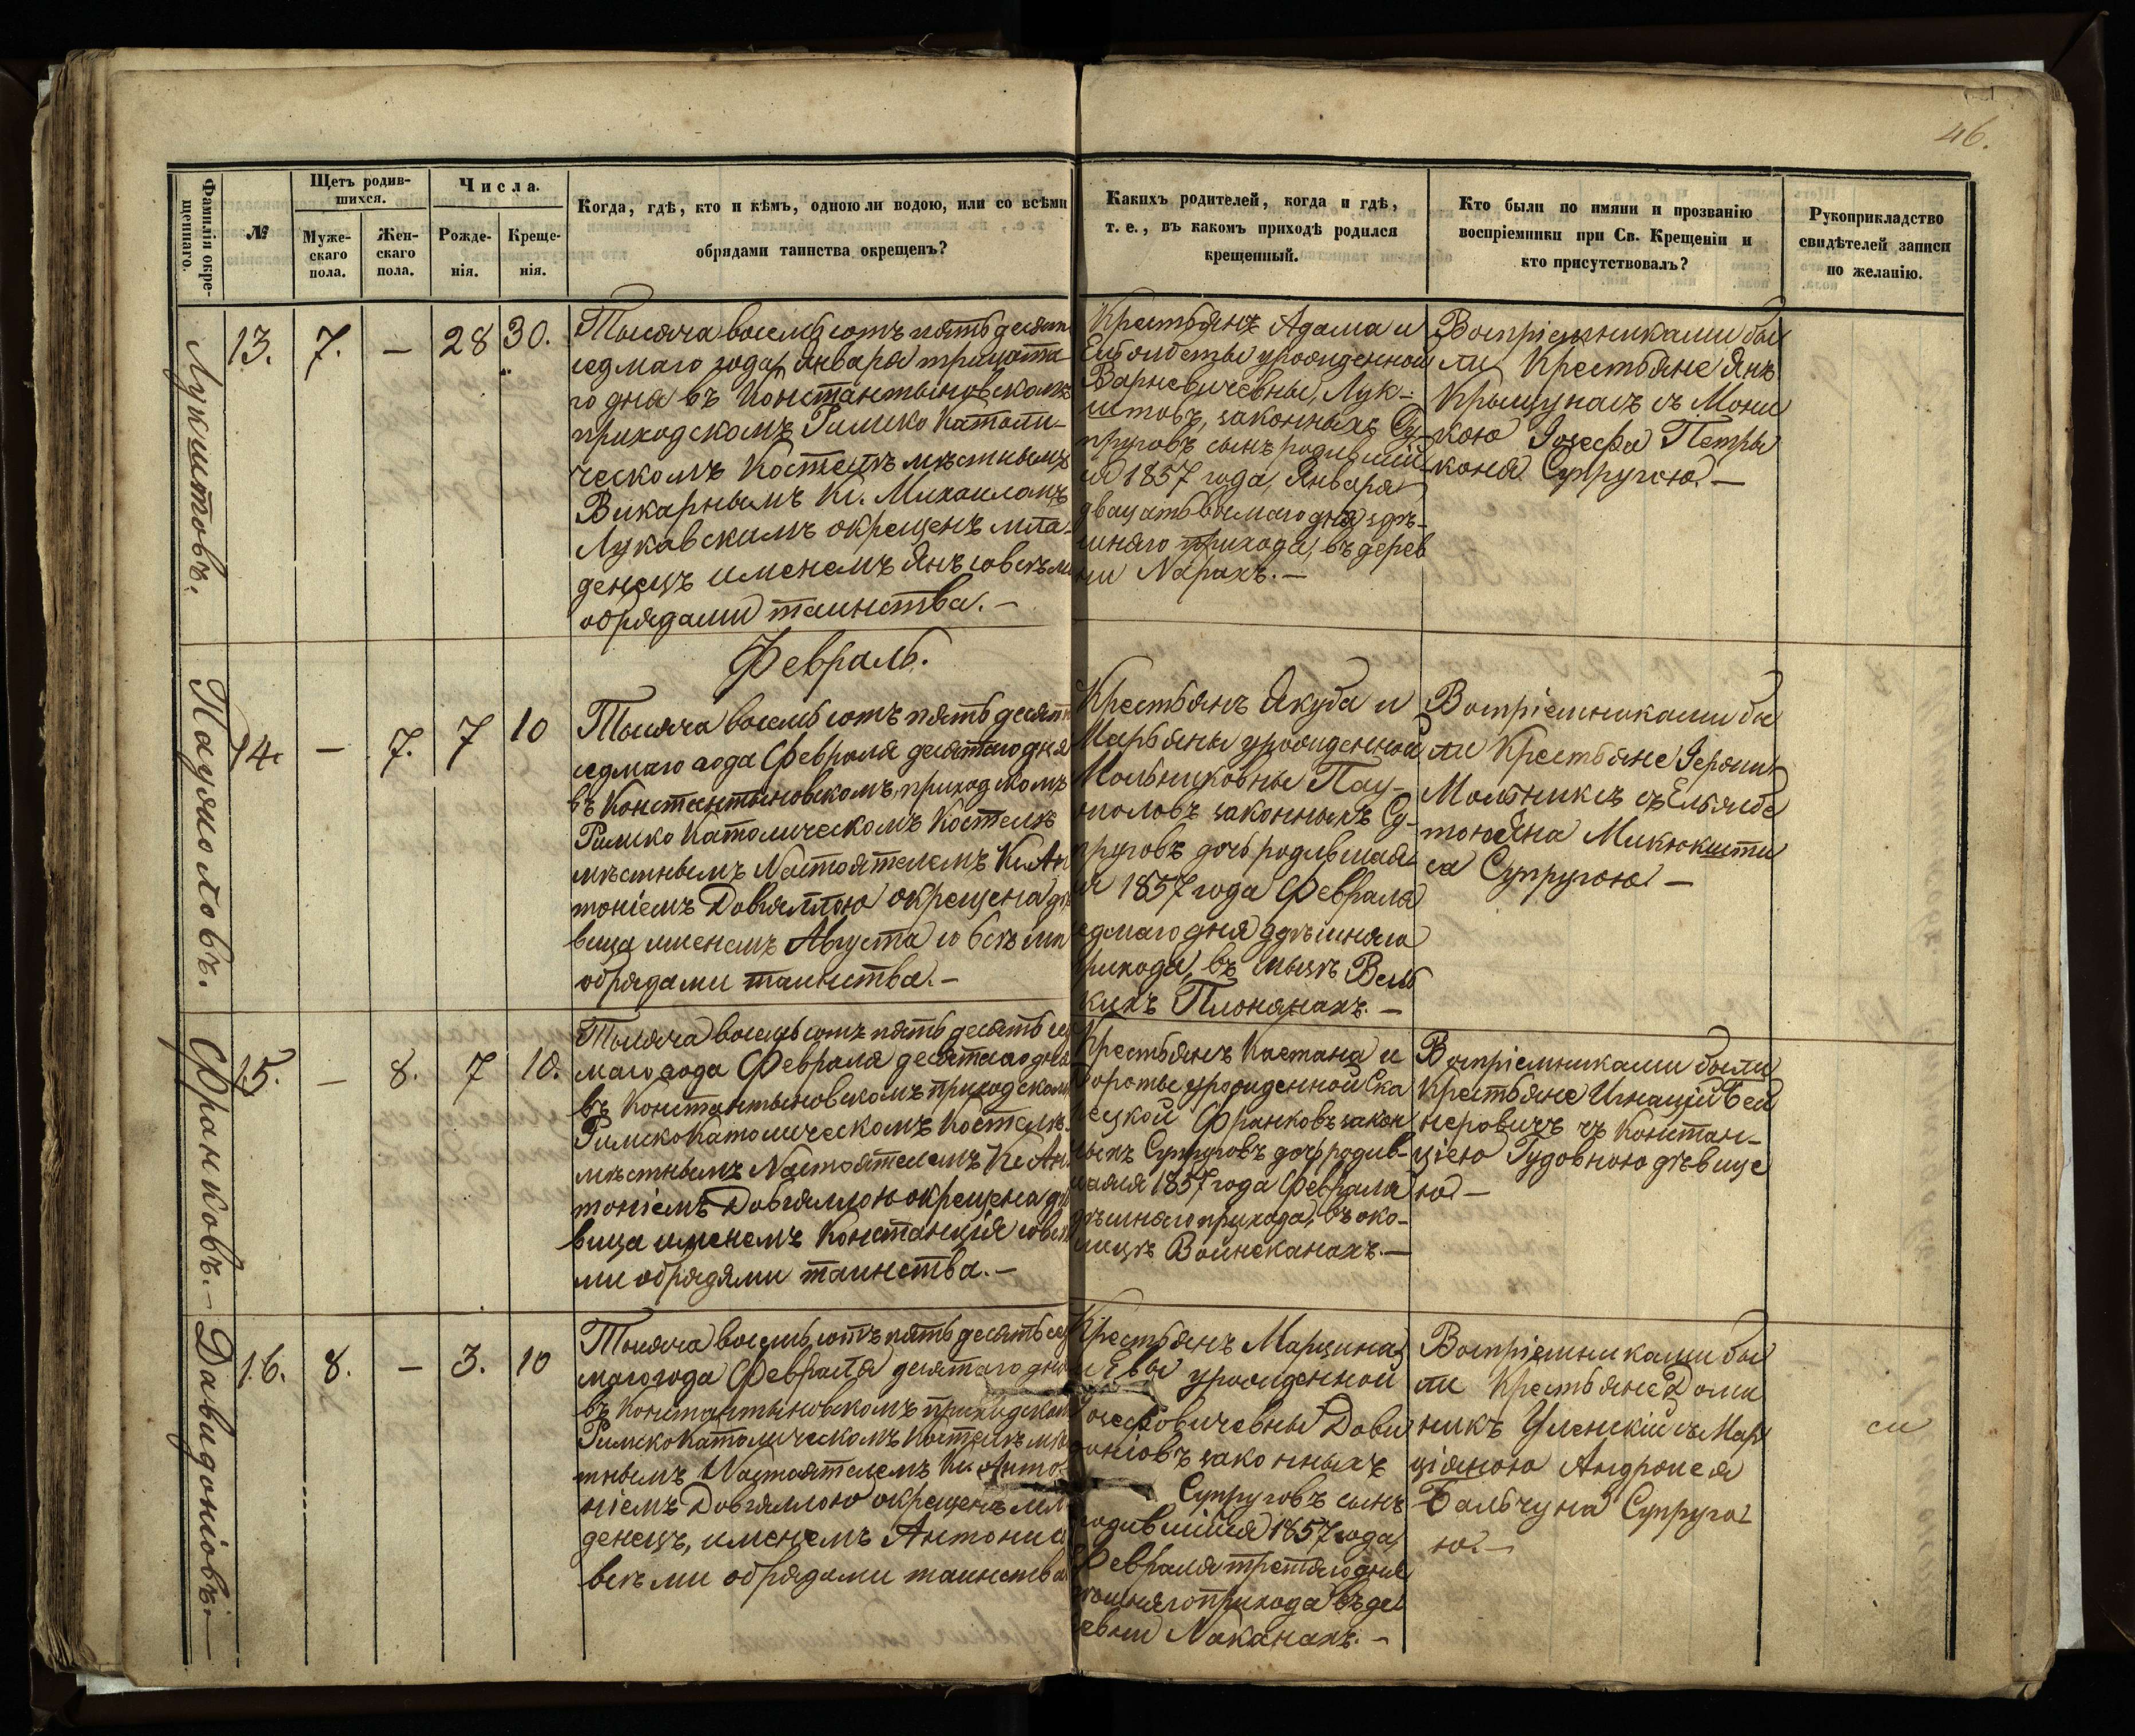 46.
Фамилія окре-
щеннаго.
№
Щетъ родив-
шихся.
Муже-
скаго
пола.
Жен-
скаго
пола.
Числа.
Рожде-
нія.
Креще-
нія.
Когда, гдѣ, кто и кѣмъ, одною ли водою, или со всѣми
обрядами таинства окрещенъ?
Какихъ родителей, когда и гдѣ,
т. е., въ какомъ приходѣ родился
крещенный.
Кто были по имяни и прозванію
воспріемники при Св. Крещеніи и
кто присутствовалъ?
Рукоприкладство
свидѣтелей записи
по желанію.
Лукштовъ.
13.
7.
—
28
30.
Тысяча восемь сотъ пять десятъ
седмаго года, Января тридцата-
го дня въ Константыновскомъ
приходскомъ Римско Католи-
ческомъ Костелѣ мѣстнымъ
Викарнымъ Кс. Михаиломъ
Лукавскимъ окрещенъ мла-
денецъ именемъ Янъ со всѣми
обрядами таинства. —
Крестьянъ Адама и
Ельжбеты урожденной
Варневичевны, Лук-
штовъ, законныхъ Су-
пруговъ сынъ родившій
ся 1857 года, Января
двацать восмаго дня, здѣ-
шняго прихода, въ дерев
ни Нарахъ. —
Воспріемниками бы
ли Крестьяне Янъ
съ Мони
кою Іозефа Петры
коня Супругою. —
Февраль.
14.
—
7.
7
10
Тысяча восемь сотъ пять десятъ
седмаго года Февраля десятаго дня
въ Константыновскомъ, приходскомъ
Римско Католическомъ Костелѣ
мѣстнымъ Настоятелемъ Кс. Ан
тоніемъ Довгялло окрещена дѣ
вица именемъ Августа со всѣми
обрядами таинства. —
Крестьянъ Якуба и
Марьяны урожденной
законныхъ Су-
пруговъ дочь родившая
ся 1857 года Февраля
седмаго дня здѣшняго
прихода, въ мызѣ Вель
кихъ Плонянахъ. —
Воспріемниками бы
ли Крестьяне
съ Ельжбе
тою Яна
са Супругою —
Франковъ. —
15.
—
8.
7
10.
Тысяча восемь сотъ пять десятъ сед
маго года Февраля десятаго дня
въ Константыновскомъ приходскомъ
Римско Католическомъ Костелѣ
мѣстнымъ Настоятелемъ Кс. Ан
тоніемъ Довгялло окрещена дѣ
вица именемъ Констанція со всѣ
ми обрядями таинства. —
Крестьянъ Каетана и
Доротьи урожденной
Франковъ закон
ныхъ Супруговъ дочь родив-
шаяся 1857 года Февраля
здѣшняго прихода, въ око-
лицѣ Войнеканахъ. —
Воспріемниками были
Крестьяне Игнацій
неровичъ съ Констан-
ціею Гудовною дѣвице
ю. —
Давидоніовъ. —
16.
8.
—
3.
10
Тысяча восемь сотъ пять десятъ сед
маго года Февраля десятаго дня
въ Константыновскомъ приходскомъ
Римско Католическомъ Костелѣ мѣс
тнымъ Настоятелемъ Кс. Анто-
ніемъ Довгялло окрещенъ мла
денецъ, именемъ Антоній со
всѣми обрядами таинства
Крестьянъ Марцина
и Евы урожденной
Юзефовичевны Дави
доніовъ законныхъ
Супруговъ сынъ
родившійся 1857 года,
Февраля третяго дня
здѣшняго прихода въ де
ревни Наканахъ. —
Воспріемниками бы
ли Крестьяне Доми
никъ съ Мар
ціяною
Бальчуна Супруго
ю. —